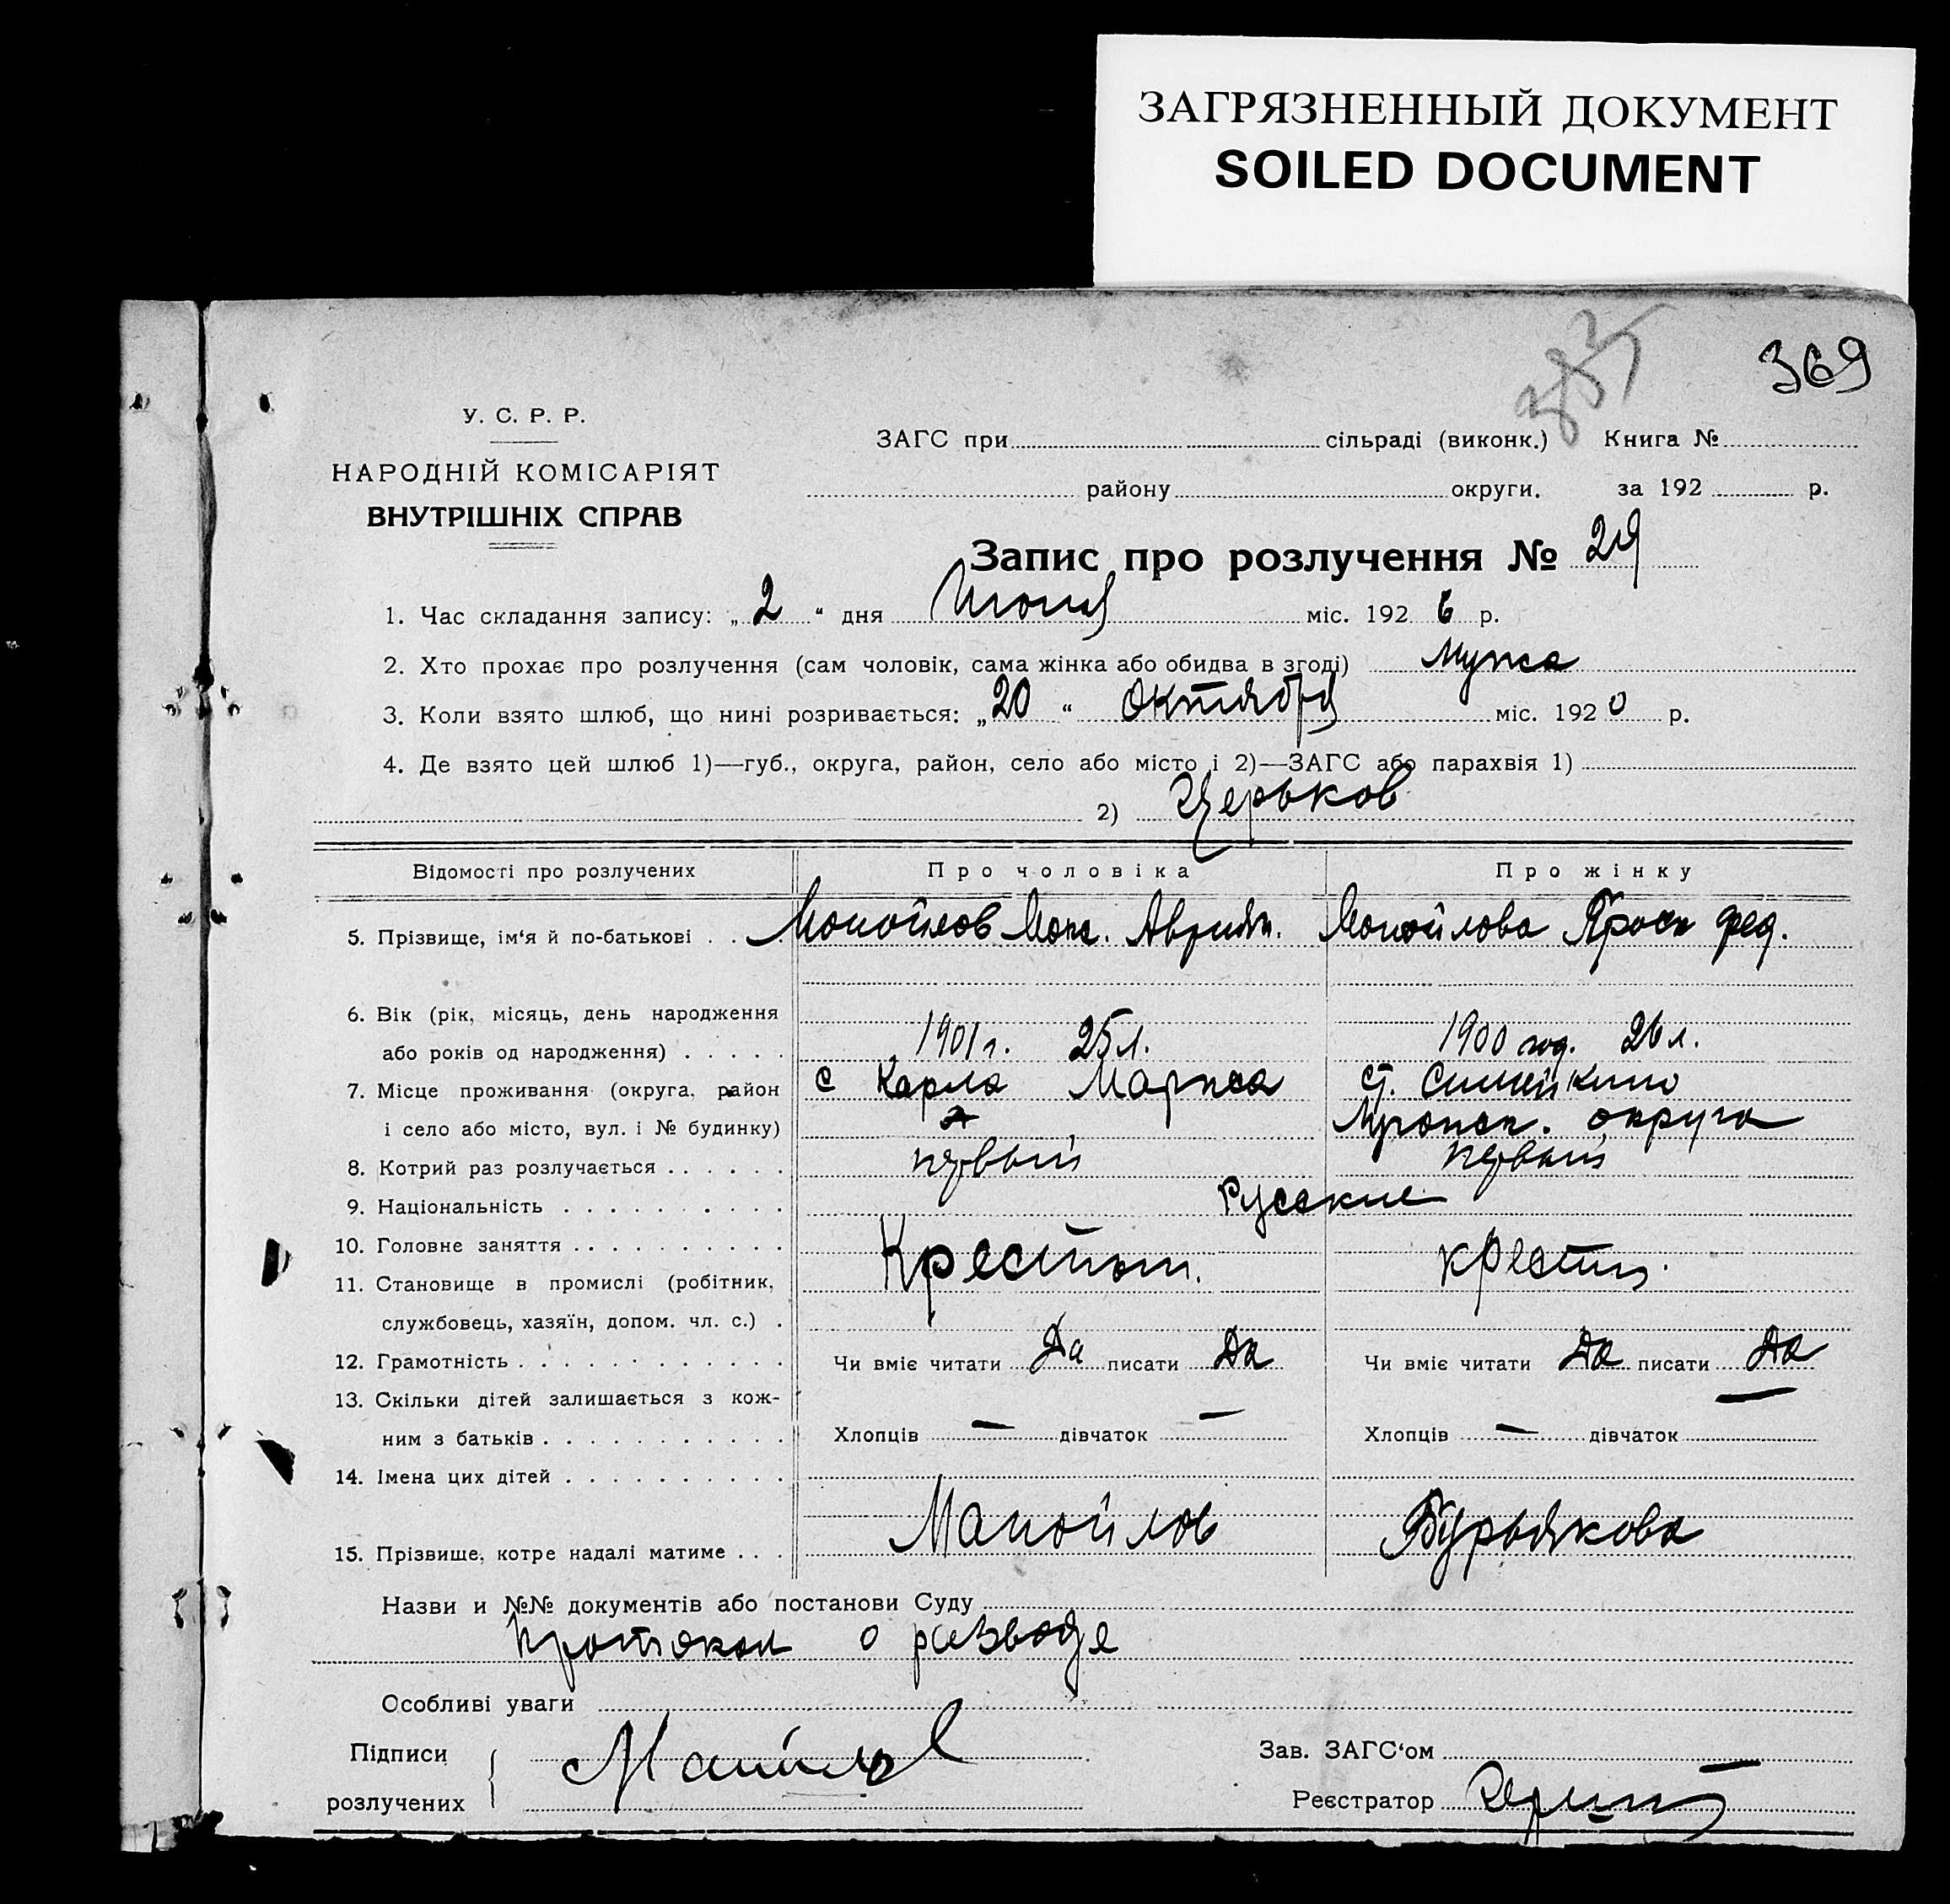 ЗАГРЯЗНЕННЫЙ ДОКУМЕНТ
SOILED DOCUMENT
369
У. С. Р. Р.
НАРОДНІЙ КОМІСАРІЯТ
ВНУТРІШНІХ СПРАВ
ЗАГС при сільраді (виконк.) Книга №
району округи. за 192 р.
Запис про розлучення № 29
1. Час складання запису: „2“ дня Июня міс. 1926 р.
2. Хто прохає про розлучення (сам чоловік, сама жінка або обидва в згоді) Мужа
3. Коли взято шлюб, що нині розривається: „20“ Октября міс. 1920 р.
4. Де взято цей шлюб 1)—губ., округа, район, село або місто і 2)—ЗАГС або парахвія 1)
2) Церьков
Відомості про розлучених Про чоловіка Про жінку
5. Прізвище, ім‘я й по-батькові . . . . Манойлов Манойлова Фед.
6. Вік (рік, місяць, день народження
або років од народження) . . . . . 1901 г. 25 л. 1900 год. 26 л.
7. Місце проживання (округа, район с Карла Маркса ст.
і село або місто, вул. і № будинку) округа
8. Котрий раз розлучається . . . . . . первый первый
9. Національність . . . . . . . . . . Русские
10. Головне заняття . . . . . . . . . . Крестьян. крестьн.
11. Становище в промислі (робітник,
службовець, хазяїн, допом. чл. с.) .
12. Грамотність . . . . . . . . . . . . Чи вміє читати Да писати Да Чи вміє читати Да писати Да
13. Скільки дітей залишається з кож-
ним з батьків . . . . . . . . . . . Хлопців — дівчаток — Хлопців — дівчаток —
14. Імена цих дітей . . . . . . . . . .
15. Прізвище, котре надалі матиме . . . Манойлов Бурьякова
Назви и №№ документів або постанови Суду
Протокол о разводе
Особливі уваги
Підписи Манойлов Зав. ЗАГС‘ом
розлучених Реєстратор